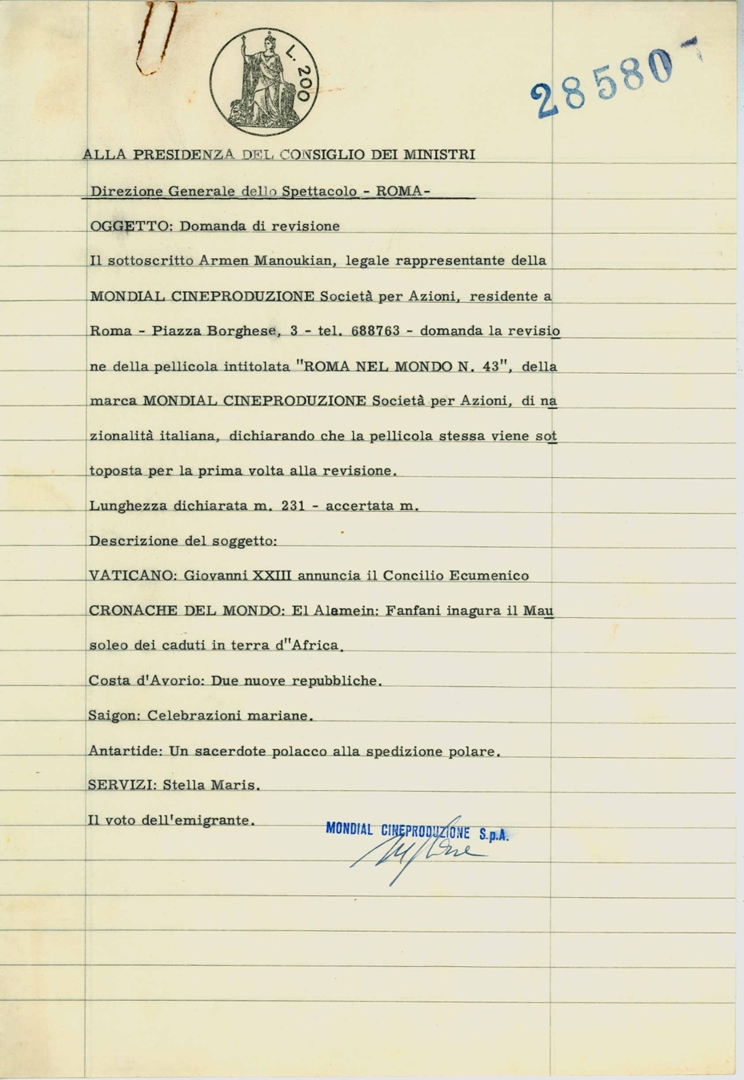 L. 200
28580
ALLA PRESIDENZA DEL CONSIGLIO DEI MINISTRI
Direzione Generale dello Spettacolo - ROMA-
OGGETTO: Domanda di revisione
Il sottoscritto Armen Manoukian, legale rappresentante della
MONDIAL CINEPRODUZIONE Società per Azioni, residente a
Roma - Piazza Borghese, 3 - tel. 688763 - domanda la revisio
ne della pellicola intitolata "ROMA NEL MONDO N. 43", della
marca MONDIAL CINEPRODUZIONE Società per Azioni, di na
zionalità italiana, dichiarando che la pellicola stessa viene sot
toposta per la prima volta alla revisione.
Lunghezza dichiarata m. 231 - accertata m.
Descrizione del soggetto:
VATICANO: Giovanni XXIII annuncia il Concilio Ecumenico
CRONACHE DEL MONDO: El Alamein: Fanfani inagura il Mau
soleo dei caduti in terra d"Africa.
Costa d'Avorio: Due nuove repubbliche.
Saigon: Celebrazioni mariane.
Antartide: Un sacerdote polacco alla spedizione polare.
SERVIZI: Stella Maris.
Il voto dell'emigrante.
MONDIAL CINEPRODUZIONE S.p.A.